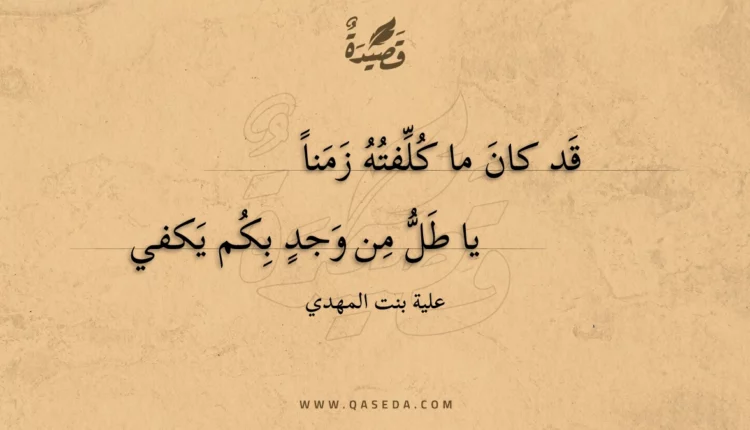 قَصِيْدَةٌ
قَد كانَ ما كُلِّفتُهُ زَمَناً
يا طَلُّ مِن وَجدٍ بِكُم يَكفي
علية بنت المهدي
WWW.QASEDA.COM